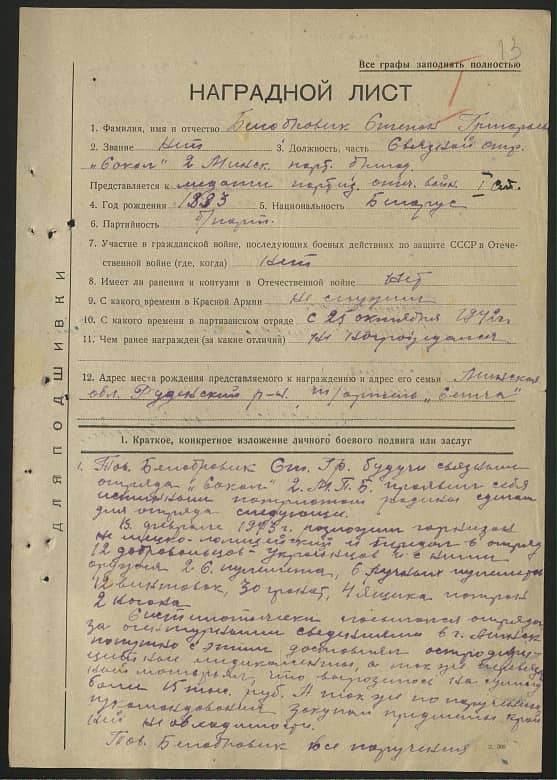 13
Все графы заполнять полностью
НАГРАДНОЙ ЛИСТ
1. Фамилия, имя и отчество Белобровик Степан Григорьев
2. Звание нет 3. Должность, часть Связной отр.
"Сокол" 2 Минск. парт. бригад.
Представляется к медали партиз. отеч. войн. I ст.
4. Год рождения 1883 5. Национальность Беларус
6. Партийность б/парт.
7. Участие в гражданской войне, последующих боевых действиях по защите СССР в Отече-
ственной войне (где, когда) нет
8. Имеет ли ранения и контузии в Отечественной войне нет
9. С какого времени в Красной Армии не служил
10. С какого времени в партизанском отряде с 25 октября 1942г.
11. Чем ранее награжден (за какие отличия) не награждался
12. Адрес места рождения представляемого к награждению и адрес его семьи Минская
обл. Руденский р-н
ДЛЯ ПОДШИВКИ
I. Краткое, конкретное изложение личного боевого подвига или заслуг
1. Тов. Белобровик Ст. Гр. будучи связным
отряда "Сокол" 2. М.П.Б. проявил себя
истинным патриотом родины сделав
для отряда следующее.
В феврале 1943г. разложил гарнизон
немецко-полицейский и привел в отряд
12 добровольцев-украинцев и с ними
оружия 2 ст. пулемета, 6 ручных пулеметов
12 винтовок, 30 гранат, 4 ящика патрон
2 нагана
Систематически посылался отрядом
за агентурными сведениями в г. Минск
попутно с этим доставлял
медикаменты, а также
материал, что выразилось на сумму
более 15 тыс. руб. А также по поручению
командования закупал предметы край
ней необходимости.
Тов. Белобровик все поручения